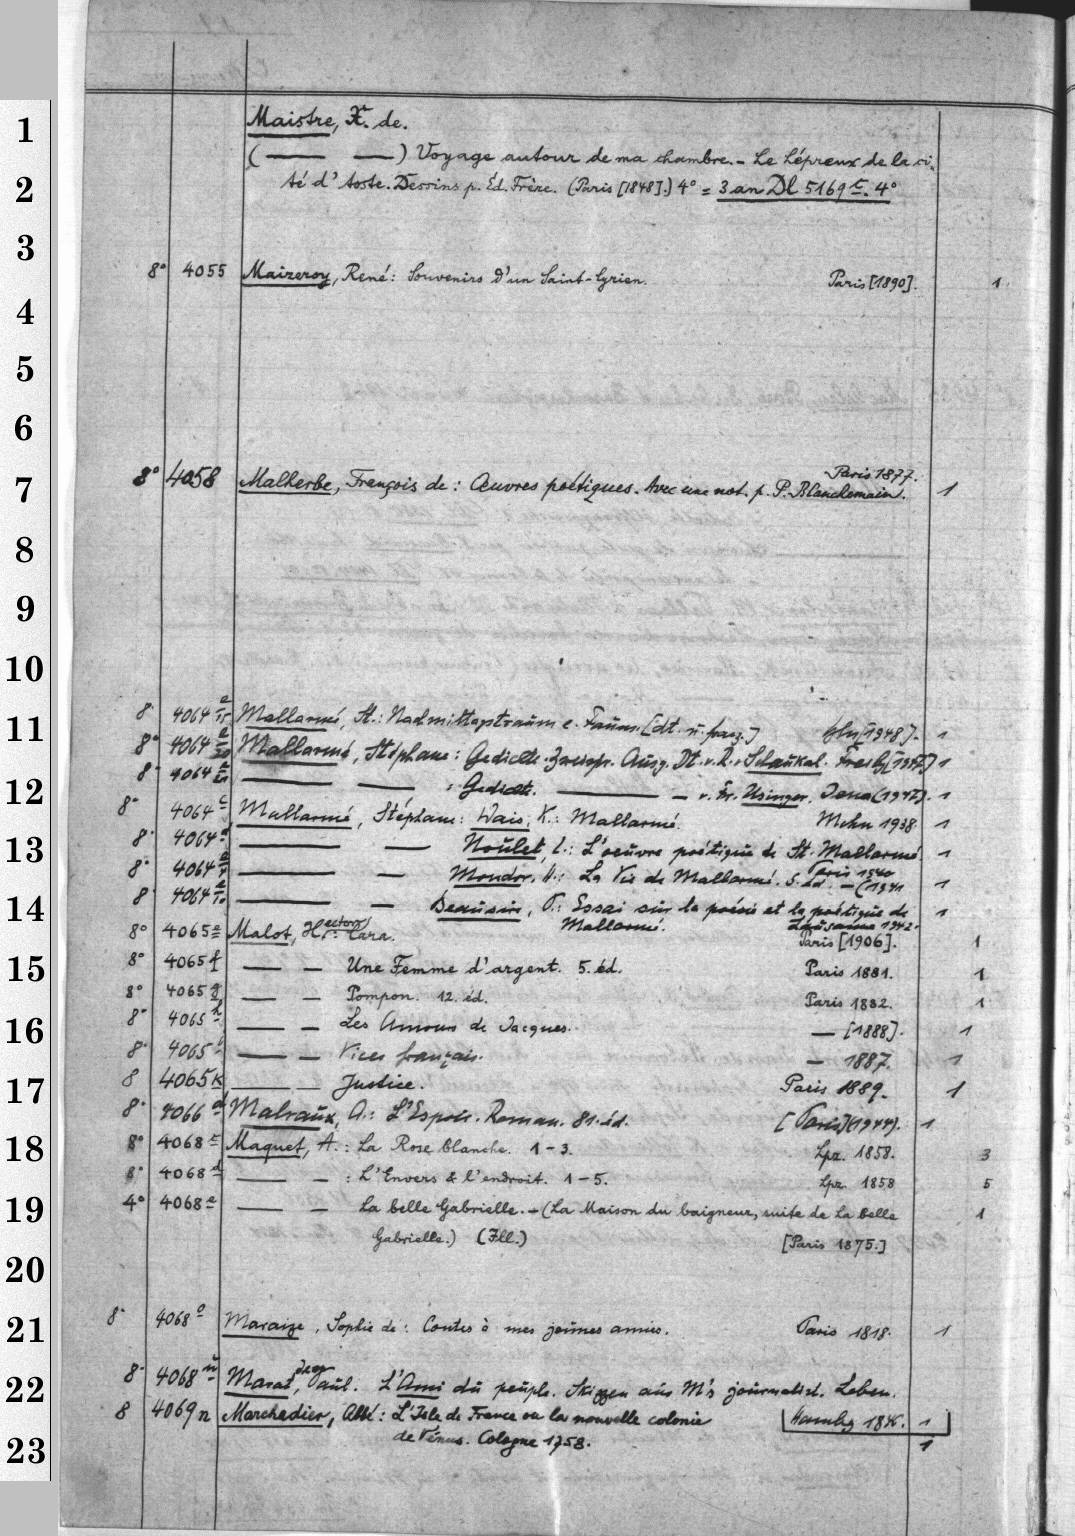 1
Maistre, X. de.
(— —) Voyage autour de ma chambre. - Le Lépreux de la ci-
2
té d'Aoste. Dessins p. Éd. Frère. (Paris [1848].) 4° = 3 an Dl 5169 c. 4°
3
8° 4055 Maizeroy, René: Souvenirs d'un Saint-Cyrien. Paris [1890]. 1
4
5
6
7
8° 4058 Malherbe, François de: Œuvres poétiques. Avec une not. p. P. Blanchemain. Paris 1877. 1
8
9
10
11
8° 4064 Mallarmé, St.: Nachmittagstraum e. Fauns. [dt. u. franz.] [1948]. 1
8° 4064 Mallarmé, Stéphane: Gedichte. Zweispr. Ausg. Dt. v. R. v. Schaukal. Freibg [1947] 1
12
8° 4064 — — : Gedichte. — — v. Fr. Usinger. Jena (1947). 1
8° 4064 c Mallarmé, Stéphane: Wais, K.: Mallarmé. Mchn 1938 1
13
8° 4064 d — — Noulet, E.: L'oeuvre poétique de St. Mallarmé Paris 1940 1
8° 4064 — — Mondor, H.: La Vie de Mallarmé. 5. éd. — (1941 1
14
8° 4064 — — Beausire, P.: Essai sur la poésie et la poétique de 1
Mallarmé. Lausanne 1942.
8° 4065 e Malot, Hector: Cara. Paris [1906]. 1
15
8° 4065 f — — Une Femme d'argent. 5. éd. Paris 1881. 1
8° 4065 g — — Pompon. 12. éd. Paris 1882. 1
16
8° 4065 h — — Les Amours de Jacques. — [1888]. 1
8° 4065 i — — Vices français. — 1887. 1
17
8 4065 k — — Justice. Paris 1889. 1
8° 4066 d Malraux, A.: L'Espoir. Roman. 81. éd. [Paris] (1944). 1
18
8° 4068 c Maquet, A.: La Rose blanche. 1-3. Lpz. 1858. 3
8° 4068 d — — : L'Envers & l'endroit. 1-5. Lpz. 1858 5
19
4° 4068 e — — La belle Gabrielle. - (La Maison du baigneur, suite de La belle 1
Gabrielle.) (Ill.) [Paris 1875.]
20
21
8° 4068 o Maraize, Sophie de: Contes à mes jeunes amies. Paris 1818. 1
22
8° 4068 u Marat, Jean Paul. L'Ami du peuple. Skizzen aus M's journalist. Leben.
Hambg 1846. 1
8 4069 n Marchadier, Abbé: L'Isle de France ou la nouvelle colonie
23
de Vénus. Cologne 1758. 1